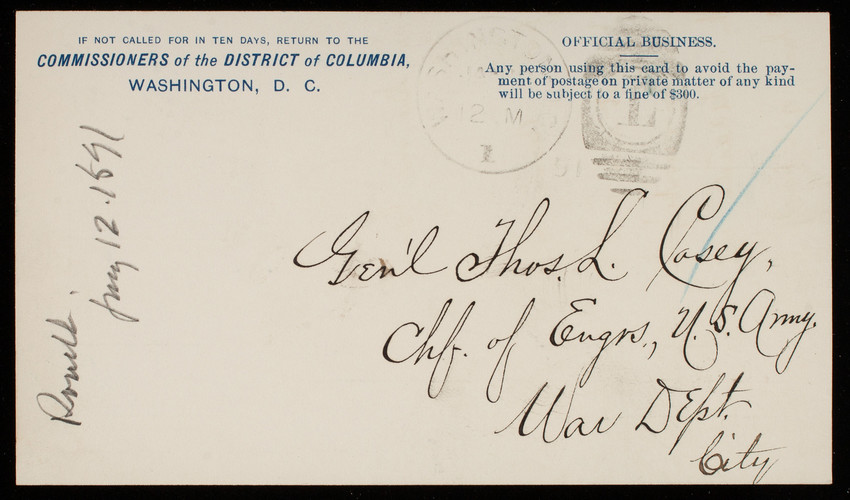 IF NOT CALLED FOR IN TEN DAYS, RETURN TO THE
COMMISSIONERS of the DISTRICT of COLUMBIA,
WASHINGTON, D. C.
OFFICIAL BUSINESS.
Any person using this card to avoid the pay-
ment of postage on private matter of any kind
will be subject to a fine of $300.
12 M
1
91
E
Gen'l Thos. L. Casey,
Chf. of Engrs., U.S. Army.
War Dept.
City
12. 1891